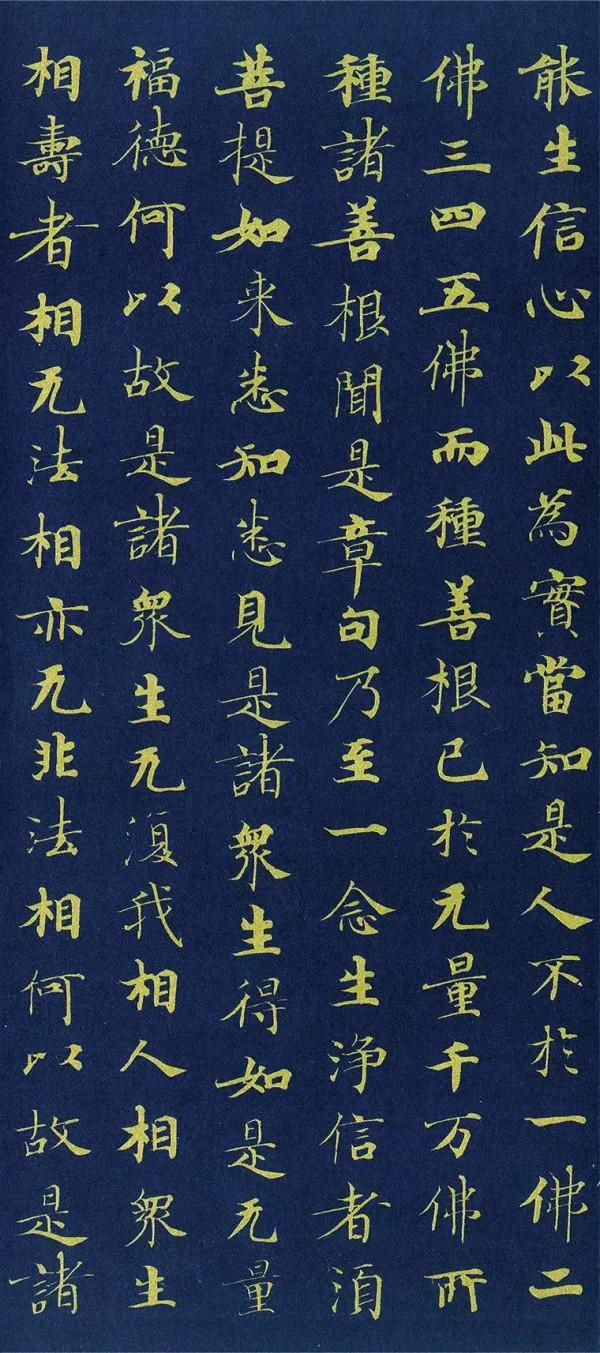 能生信心以此為實當知是人不於一佛二
佛三四五佛而種善根已於无量千万佛所
種諸善根聞是章句乃至一念生淨信者湏
菩提如来悉知悉見是諸衆生得如是无量
福德何以故是諸衆生无復我相人相衆生
相壽者相无法相亦无非法相何以故是諸